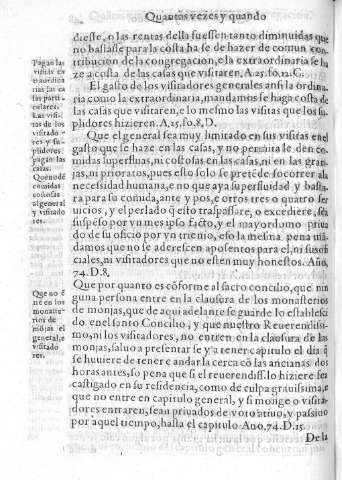 Quantos vezes y quando
dieste, o las rentas della fuessen tanto diminuidas que
no bastasse para la costa ha se de hazer de comun con
tribucion de la congregacion, e la extraordinaria se ha
ze a costa de las casas que visitaren, A.25.fo.12.C.
El gasto de los visitadores generales ansi la ordina
ria como la extraordinaria, mandamos se haga costa de
las casas que visitaren, e lo mesmo las visitas que los su
plidores hizieren. A.25.fo.8.D.
Que el general sea muy limitado en sus visitas en el
gasto que se haze en las casas, y no permita le den co
midas superfluas, ni costosas en las casas, ni en las gran
jas, ni prioratos, pues esto solo se pretēde socorrer a la
necessidad humana, e no que aya superfluidad y basta
ra para su comida, ante y pos, e otros tres o quatro ser
uicios, y el perlado q̄ esto traspassare, o excediere, sea
suspēso por vn mes ipso facto, y el mayordomo priua
do de su oficio por vn trienio, e so la mesma pena mā
damos que no se aderescen aposentos para el, ni sus ofi
ciales, ni visitadores que no esten muy honestos. Año,
74.D.8,
Que por quanto es cōforme al sacro concilio, que nin
guna persona entre en la clausura de los monasterios
de monjas, que de aqui adelante se guarde lo establesci
do en el santo Concilio, y que nuestro Reuerendissi-
mo, ni los visitadores, no entren en la clausura de las
monjas, saluo a presentarse y a tener capitulo el dia q̄
se huuiere de tener e andar la cerca cō las ancianas dos
horas antes, so pena que si el reuerendiss. lo hiziere sea
castigado en su residencia, como de culpa grauissima, e
que no entre en capitulo general, y si monge o visita-
dores entraren, sean priuados de voto actiuo, y passiuo
por aquel tiempo, hasta el capitulo Ano, 74. D.15.
De la
Pagan las
visitas ex
traordina
rias las ca
las parti-
culares.
Las visi-
tas de los
visitado-
res y su-
plidores
pagan las
casas.
Que no dē
comidas
costosas
al general
y visitado
res.
Que no ē
tre en los
monaste-
rios de
monjas el
general, e
visitado
res.